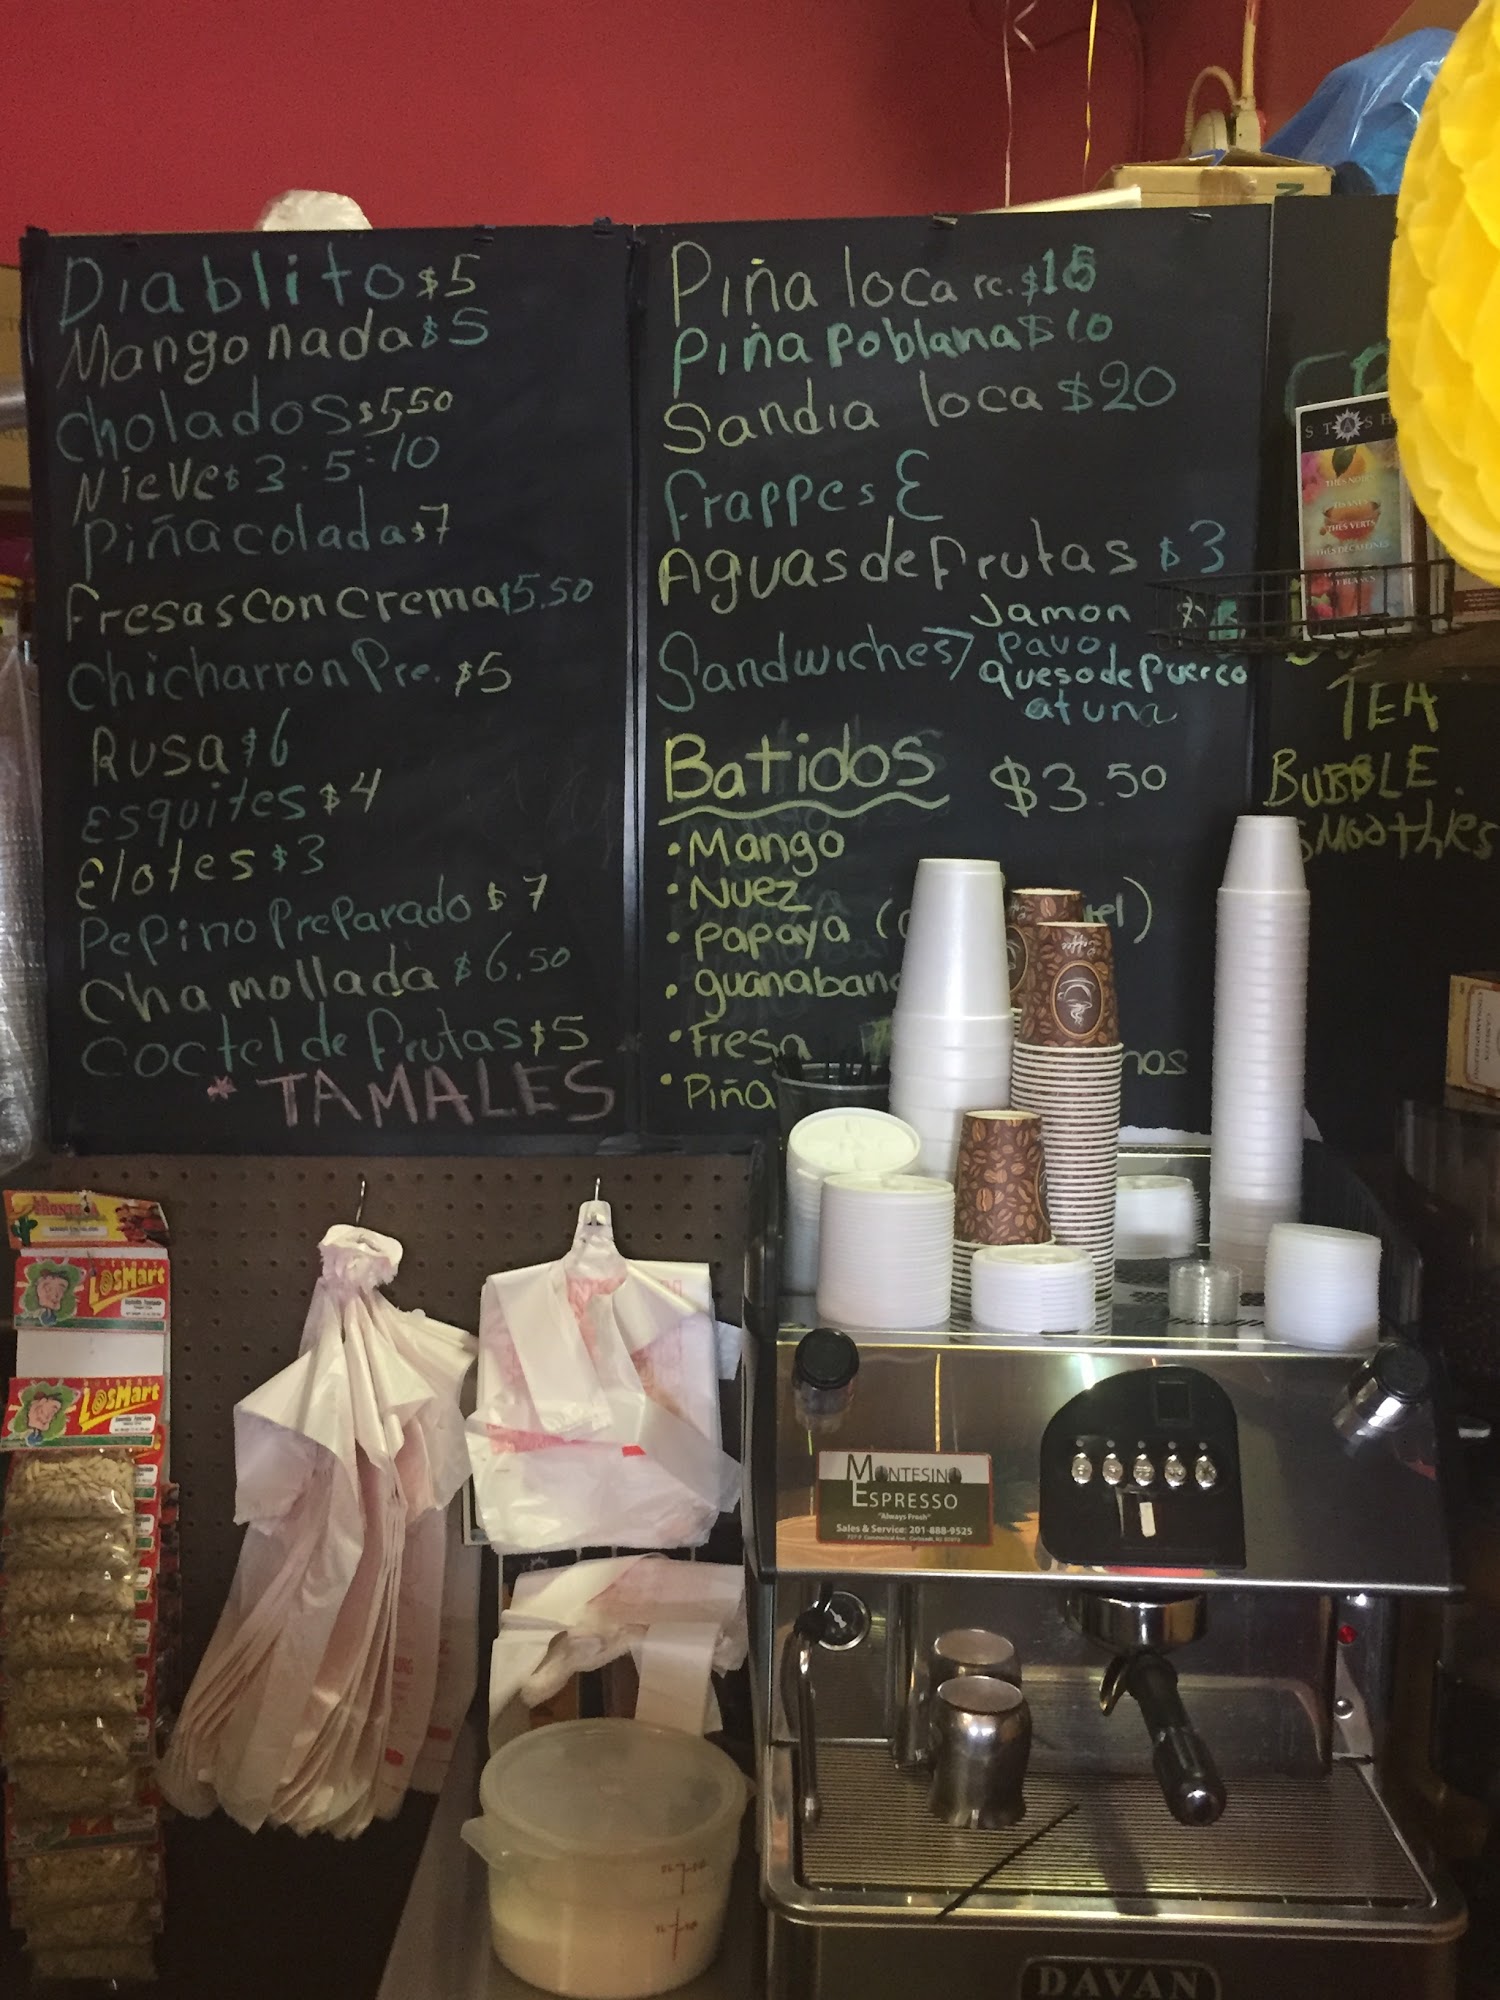 Diablito $5
Mangonada $5
Cholados $5,50
Nieve $ 3 - 5 - 10
Piña colada $7
Fresas con crema $5.50
Chicharron Pre. $5
Rusa $6
Esquites $4
Elotes $3
Pepino Preparado $7
Chamollada $6.50
Coctel de frutas $5
* TAMALES
Piña loca rc. $15
Piña Poblana $10
Sandia loca $20
Frappes E
Aguas de frutas $3
Sandwiches
Jamon
pavo
queso de puerco
atuna
Batidos $3.50
• Mango
• Nuez
• Papaya (
• guanabana
• Fresa
• Piña
STASH
THÉS NOIRS
TISANES
THÉS VERTS
THÉS DÉCAFÉINÉS
TEA
BUBBLE
SMOOTHIES
Coffee
LA FRONTERA
LOSMART
LOSMART
MONTESINO
ESPRESSO
"Always Fresh"
Sales & Service: 201-888-9525
DAVAN